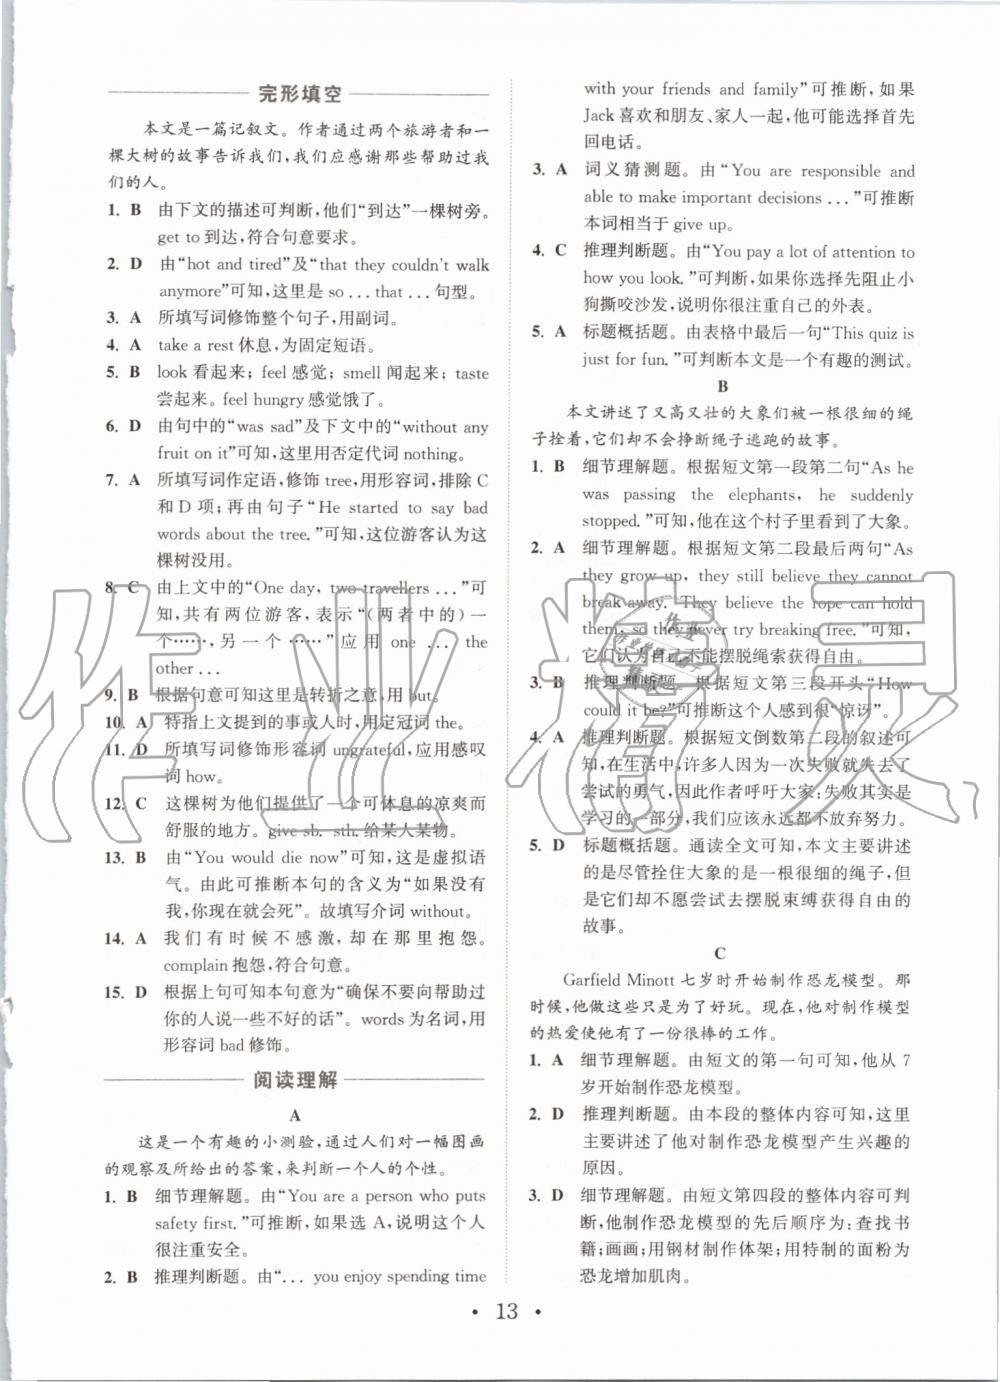 完形填空
本文是一篇记叙文。作者通过两个旅游者和一
棵大树的故事告诉我们,我们应感谢那些帮助过我
们的人。
1. B 由下文的描述可判断,他们“到达”一棵树旁。
get to到达,符合句意要求。
2. D 由“hot and tired”及“that they couldn't walk
anymore”可知,这里是 so ... that ... 句型。
3. A 所填写词修饰整个句子,用副词。
4. A take a rest休息,为固定短语。
5. B look 看起来; feel 感觉; smell 闻起来; taste
尝起来。feel hungry感觉饿了。
6. D 由句中的“was sad”及下文中的“without any
fruit on it”可知,这里用否定代词 nothing。
7. A 所填写词作定语,修饰 tree,用形容词,排除 C
和 D 项;再由句子“He started to say bad
words about the tree.”可知,这位游客认为这
棵树没用。
8. C 由上文中的“One day, two travellers ...”可
知,共有两位游客,表示“(两者中的)一
个……,另一个……”应用 one ... the
other ...
9. B 根据句意可知这里是转折之意,用 but。
10. A 特指上文提到的事或人时,用定冠词 the。
11. D 所填写词修饰形容词 ungrateful,应用感叹
词 how。
12. C 这棵树为他们提供了一个可休息的凉爽而
舒服的地方。give sb. sth. 给某人某物。
13. B 由“You would die now”可知,这是虚拟语
气。由此可推断本句的含义为“如果没有
我,你现在就会死”。故填写介词 without。
14. A 我们有时候不感激,却在那里抱怨。
complain抱怨,符合句意。
15. D 根据上句可知本句意为“确保不要向帮助过
你的人说一些不好的话”。words 为名词,用
形容词 bad 修饰。
阅读理解
A
这是一个有趣的小测验,通过人们对一幅图画
的观察及所给出的答案,来判断一个人的个性。
1. B 细节理解题。由“You are a person who puts
safety first.”可推断,如果选 A,说明这个人
很注重安全。
2. B 推理判断题。由“... you enjoy spending time
with your friends and family”可推断,如果
Jack 喜欢和朋友、家人一起,他可能选择首先
回电话。
3. A 词义猜测题。由“You are responsible and
able to make important decisions ...”可推断
本词相当于 give up。
4. C 推理判断题。由“You pay a lot of attention to
how you look.”可判断,如果你选择先阻止小
狗撕咬沙发,说明你很注重自己的外表。
5. A 标题概括题。由表格中最后一句“This quiz is
just for fun.”可判断本文是一个有趣的测试。
B
本文讲述了又高又壮的大象们被一根很细的绳
子拴着,它们却不会挣断绳子逃跑的故事。
1. B 细节理解题。根据短文第一段第二句“As he
was passing the elephants, he suddenly
stopped.”可知,他在这个村子里看到了大象。
2. A 细节理解题。根据短文第二段最后两句“As
they grow up, they still believe they cannot
break away. They believe the rope can hold
them, so they never try breaking free.”可知,
它们认为自己不能摆脱绳索获得自由。
3. B 推理判断题。根据短文第三段开头“How
could it be?”可推断这个人感到很“惊讶”。
4. A 推理判断题。根据短文倒数第二段的叙述可
知,在生活中,许多人因为一次失败就失去了
尝试的勇气,因此作者呼吁大家:失败其实是
学习的一部分,我们应该永远都不放弃努力。
5. D 标题概括题。通读全文可知,本文主要讲述
的是尽管拴住大象的是一根很细的绳子,但
是它们却不愿尝试去摆脱束缚获得自由的
故事。
C
Garfield Minott 七岁时开始制作恐龙模型。那
时候,他做这些只是为了好玩。现在,他对制作模型
的热爱使他有了一份很棒的工作。
1. A 细节理解题。由短文的第一句可知,他从 7
岁开始制作恐龙模型。
2. D 推理判断题。由本段的整体内容可知,这里
主要讲述了他对制作恐龙模型产生兴趣的
原因。
3. D 细节理解题。由短文第四段的整体内容可判
断,Minott 制作恐龙模型的先后顺序为:查找书
籍;画画;用钢材制作体架;用特制的面粉为
恐龙增加肌肉。
• 13 •
作业精灵